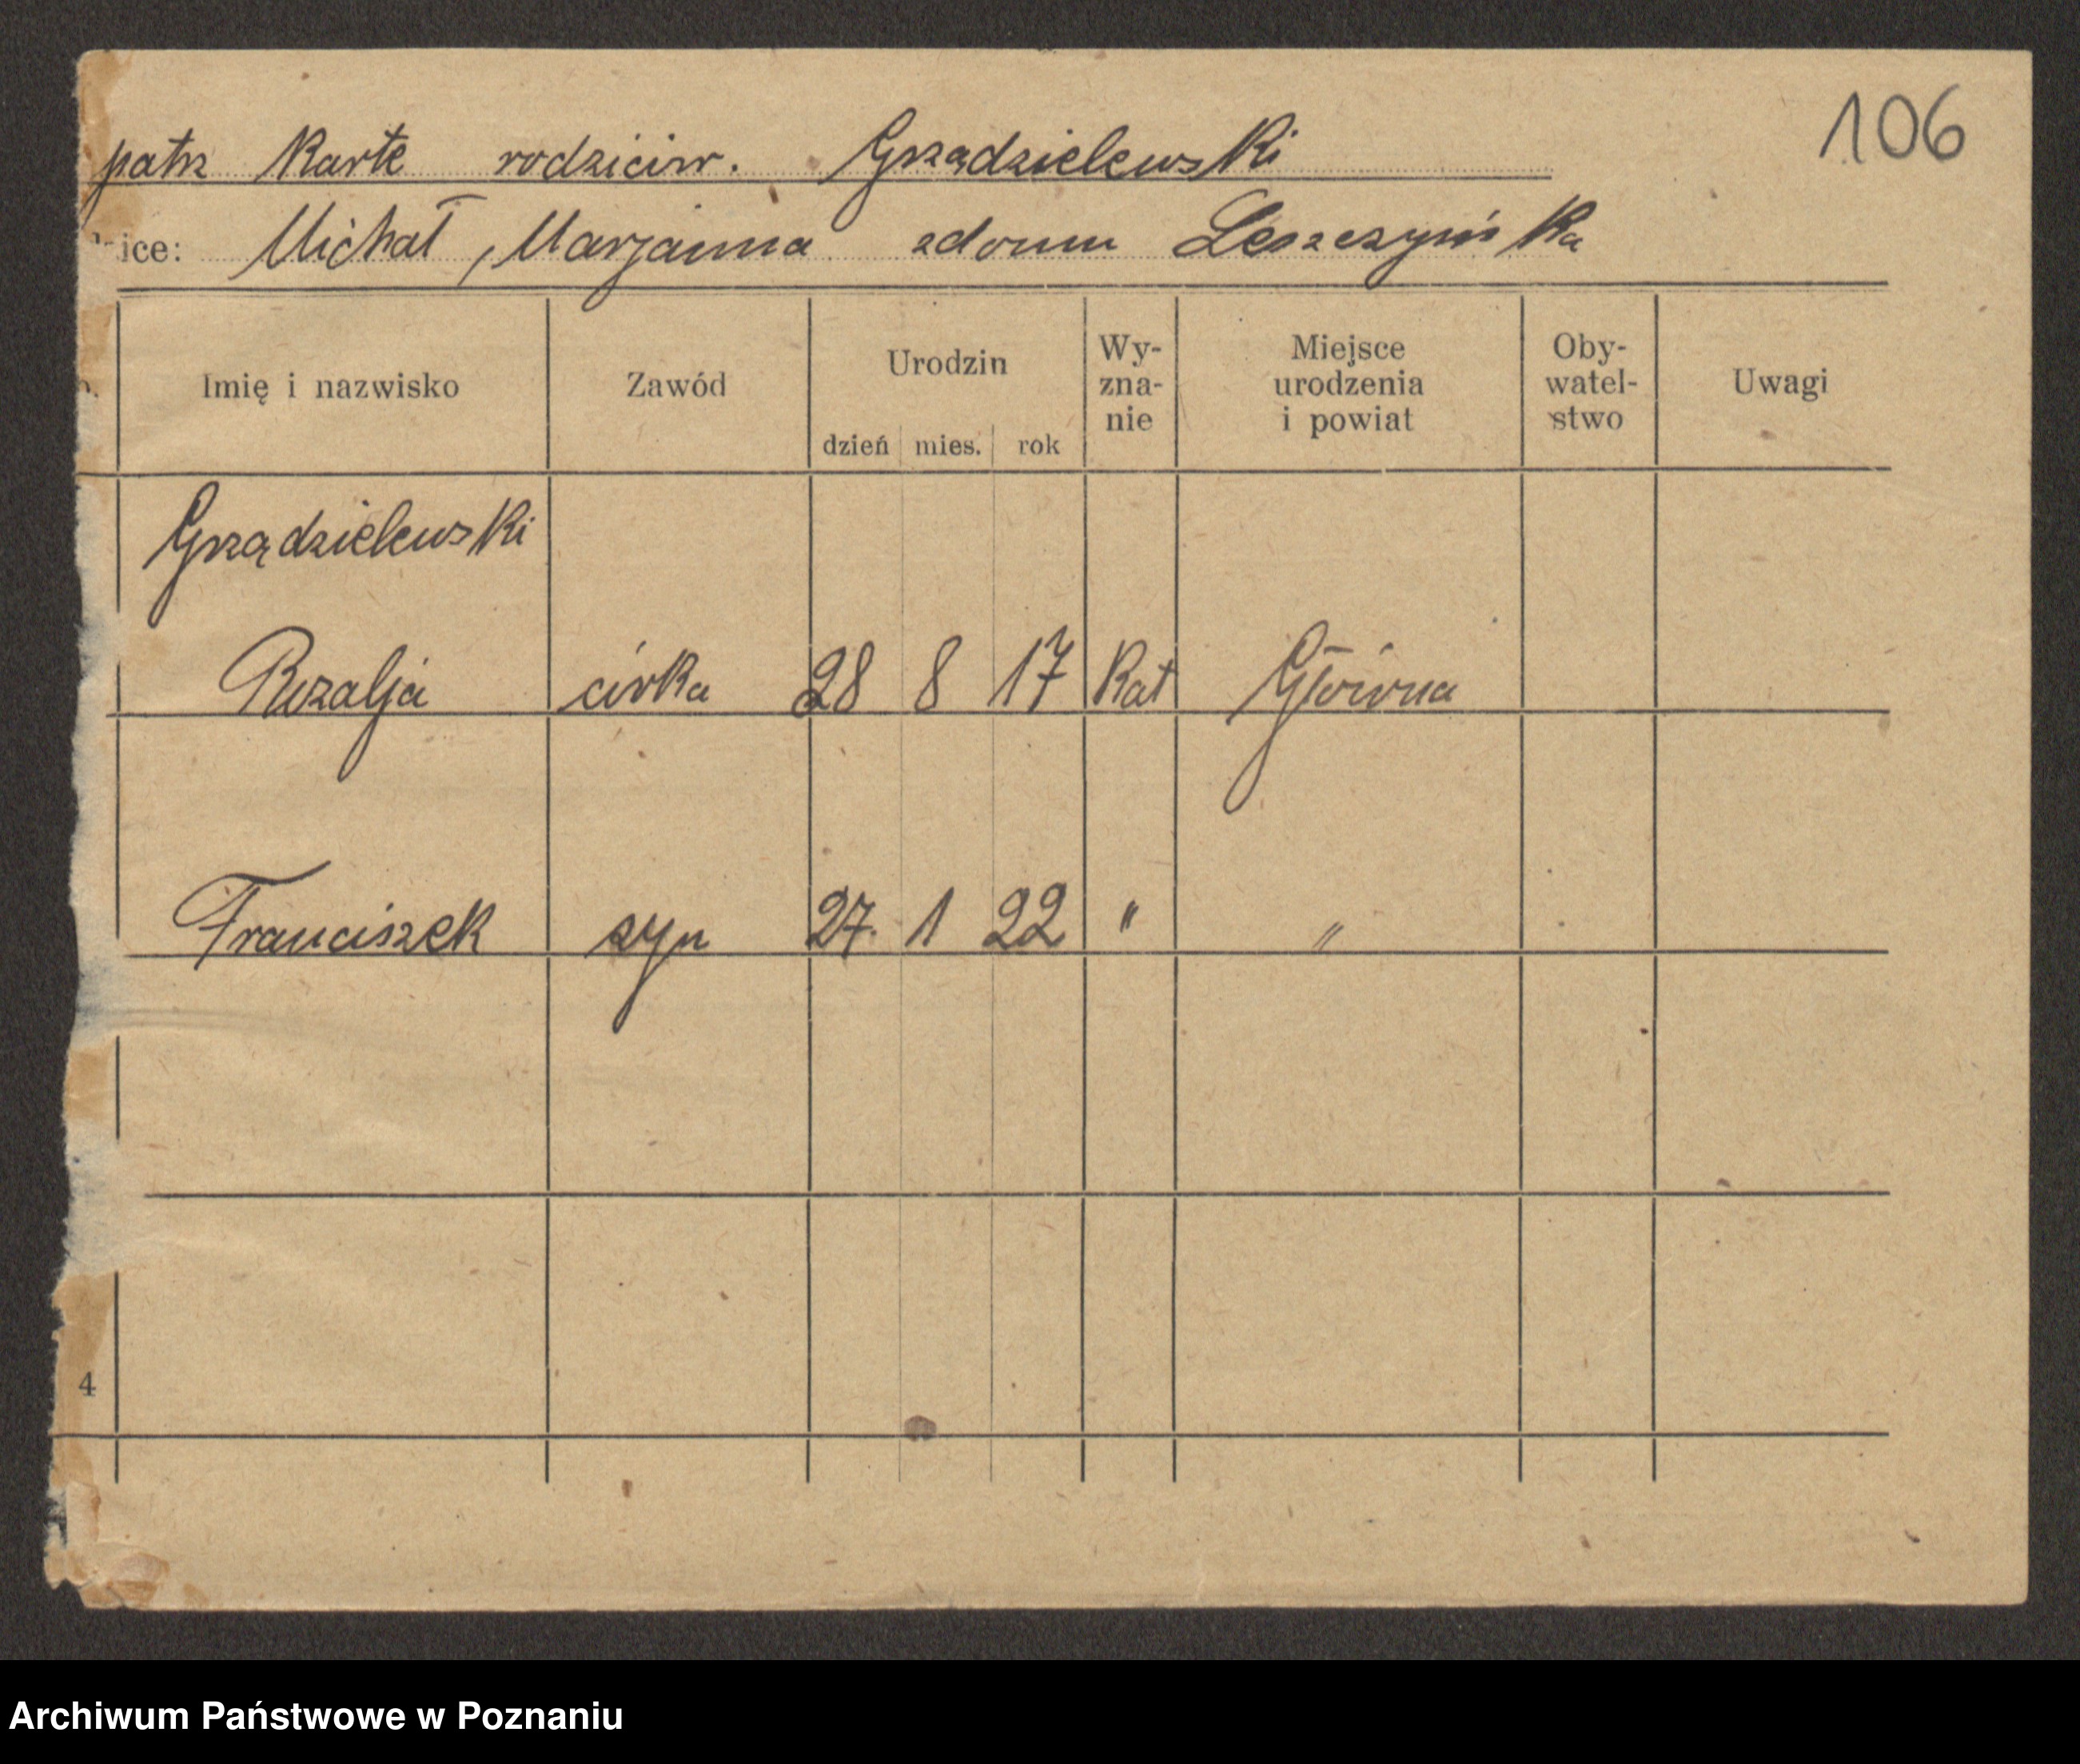 106
patrz Karte rodziców. Grządzielewski
ice: Michał, Marjanna zdomu Leszczyńska
Imię i nazwisko Zawód Urodzin dzień mies. rok Wy-zna-nie Miejsce urodzenia i powiat Oby-watel-stwo Uwagi
Grządzielewski
Rozalja córka 28 8 17 Kat Główna
Franciszek syn 27. 1 22 " "
4
Archiwum Państwowe w Poznaniu